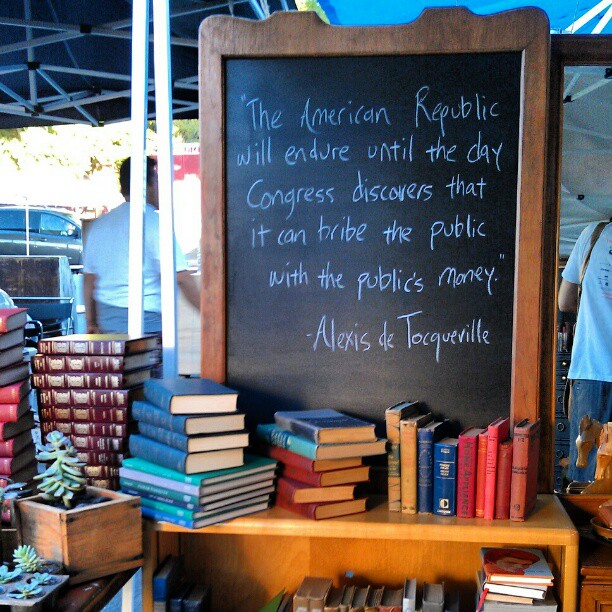 "The American Republic
will endure until the day
Congress discovers that
it can bribe the public
with the public's money."
-Alexis de Tocqueville